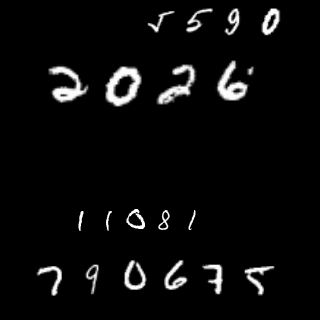 5590
2026
11081
790675